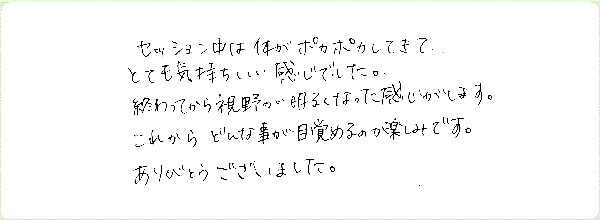 セッション中は体がポカポカしてきて..
とても気持ちいい感じでした。
終わってから視野が明るくなった感じがします。
これからどんな事が目覚めるのが楽しみです。
ありがとうございました。